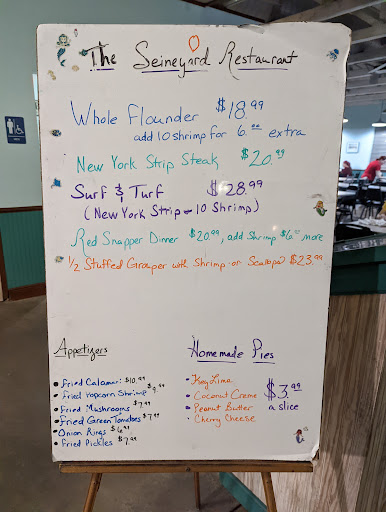 The Seineyard Restaurant
Whole Flounder $18.99
add 10 shrimp for 6.00 extra
New York Strip Steak $20.99
Surf & Turf $28.99
(New York Strip - 10 Shrimp)
Red Snapper Dinner $20.99, add Shrimp $6.00 more
1/2 Stuffed Grouper with Shrimp or Scallops $23.99
Appetizers
• Fried Calamari $10.99
• Fried Popcorn Shrimp $9.99
• Fried Mushrooms $7.99
• Fried Green Tomatoes $7.99
• Onion Rings $6.99
• Fried Pickles $7.99
Homemade Pies
• Key Lime
• Coconut Creme
• Peanut Butter
• Cherry Cheese
$3.99
a slice